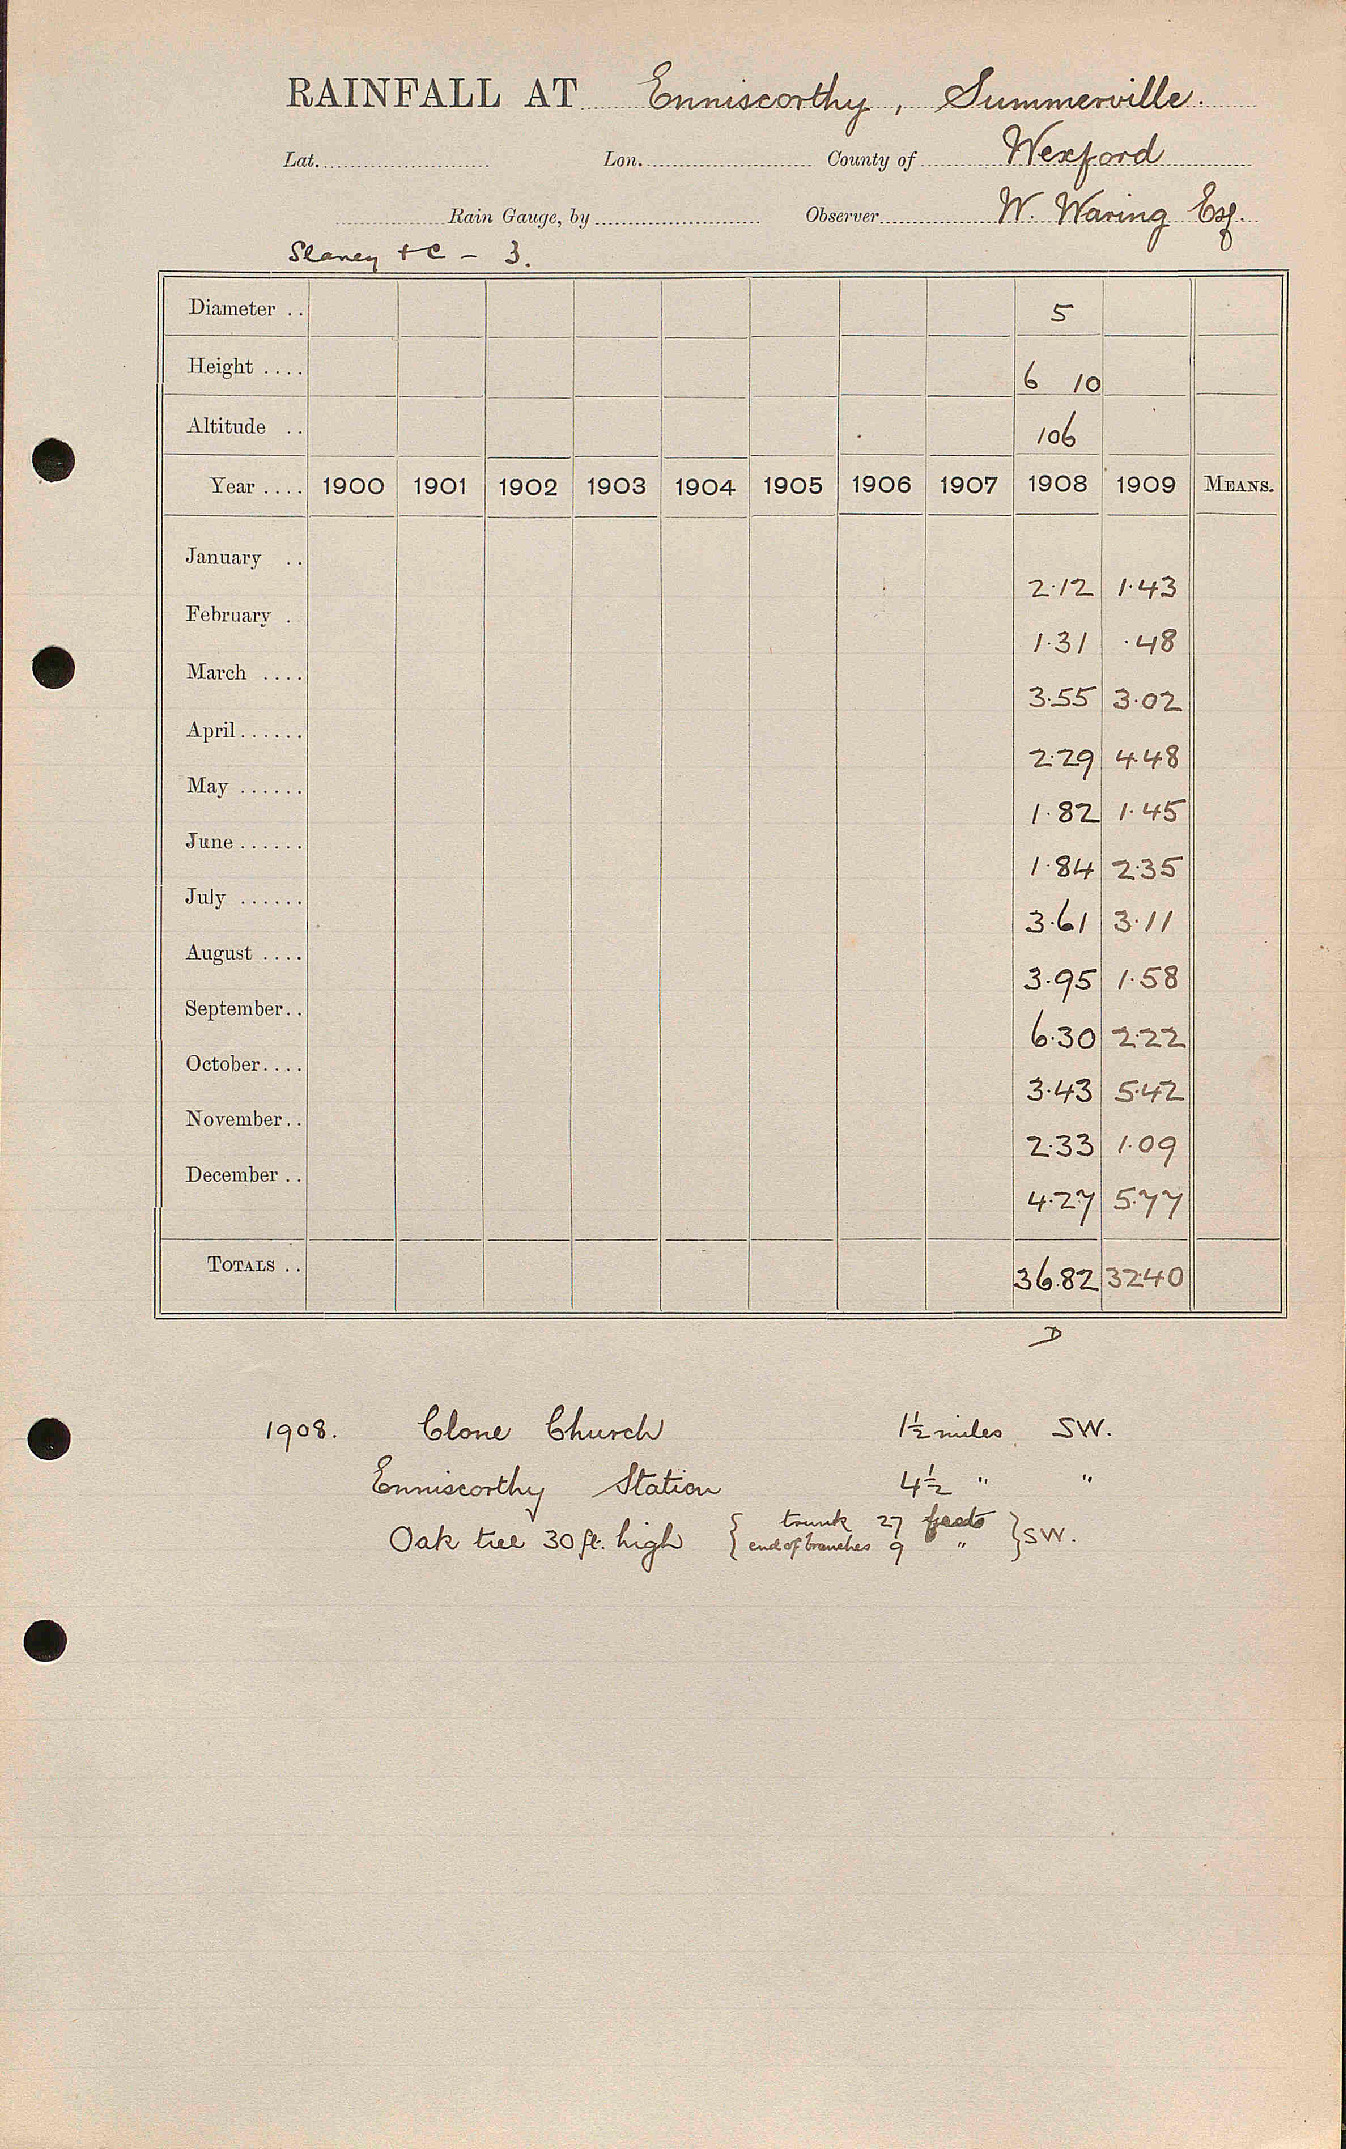 RAINFALL AT Enniscorthy, Summerville.
Lat. Lon. County of Wexford
Rain Gauge, by Observer W. Waring Esq.
Slaney + C - 3.
Diameter .. 5
Height .... 6 10
Altitude .. 106
Year .... 1900 1901 1902 1903 1904 1905 1906 1907 1908 1909 MEANS.
January .. 2.12 1.43
February . 1.31 .48
March .... 3.55 3.02
April...... 2.29 4.48
May ...... 1.82 1.45
June ...... 1.84 2.35
July ...... 3.61 3.11
August .... 3.95 1.58
September.. 6.30 2.22
October.... 3.43 5.42
November.. 2.33 1.09
December .. 4.27 5.77
TOTALS .. 36.82 32.40
D
1908. Clone Church 1½ miles SW.
Enniscorthy Station 4½ " "
Oak tree 30 ft. high { trunk 27 feet } SW.
end of branches 9 "